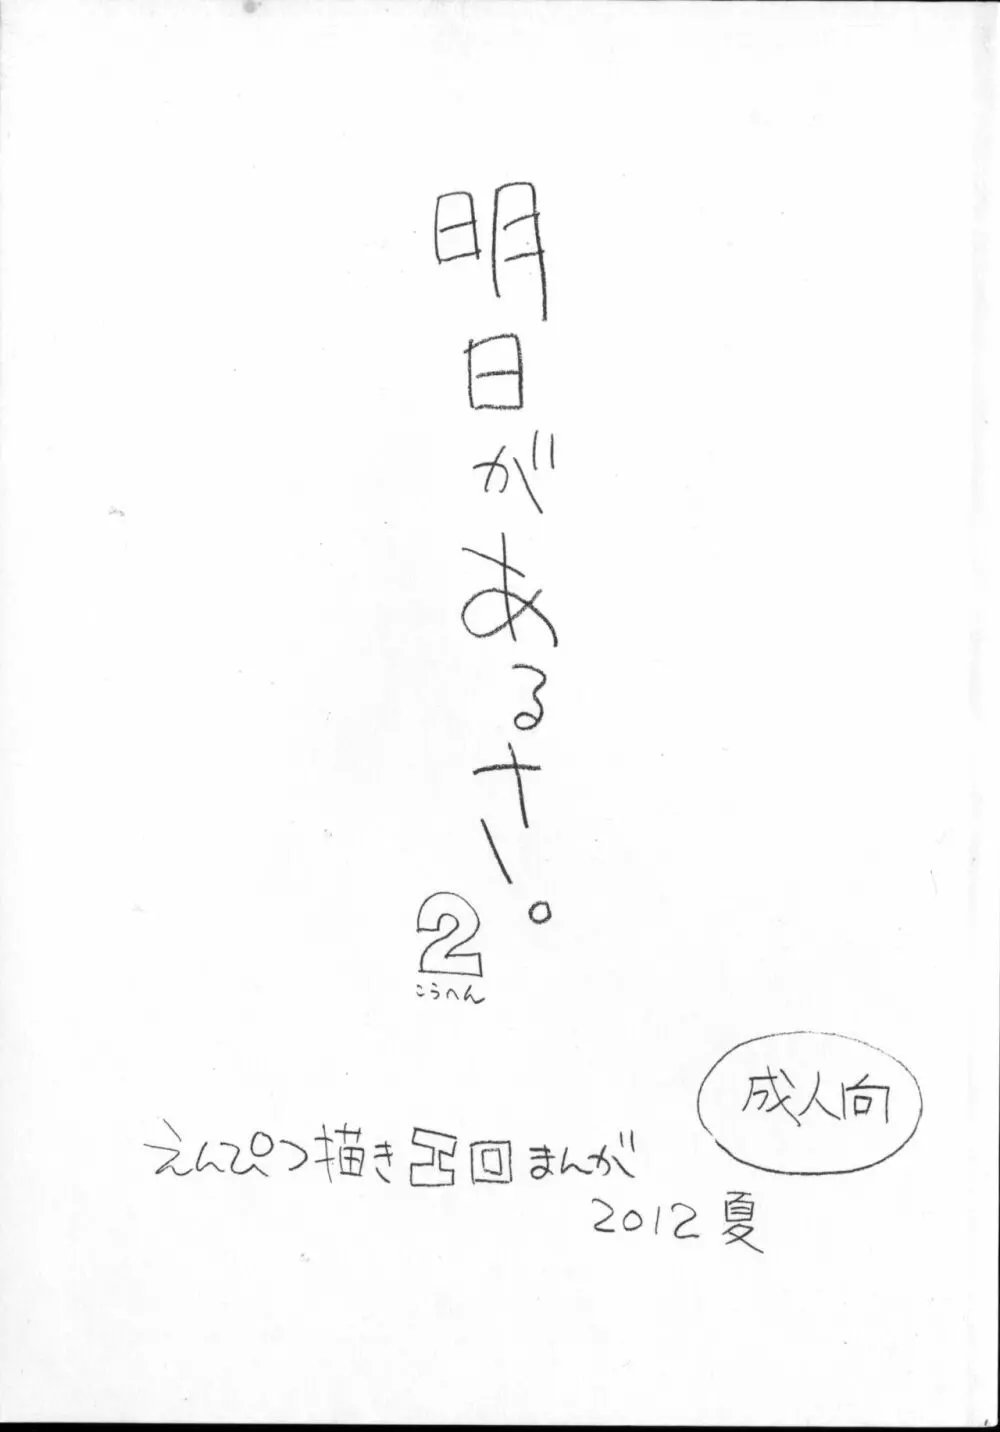 明日があるサ。
2
こうへん
成人向
えんぴつ描きエロまんが
2012夏